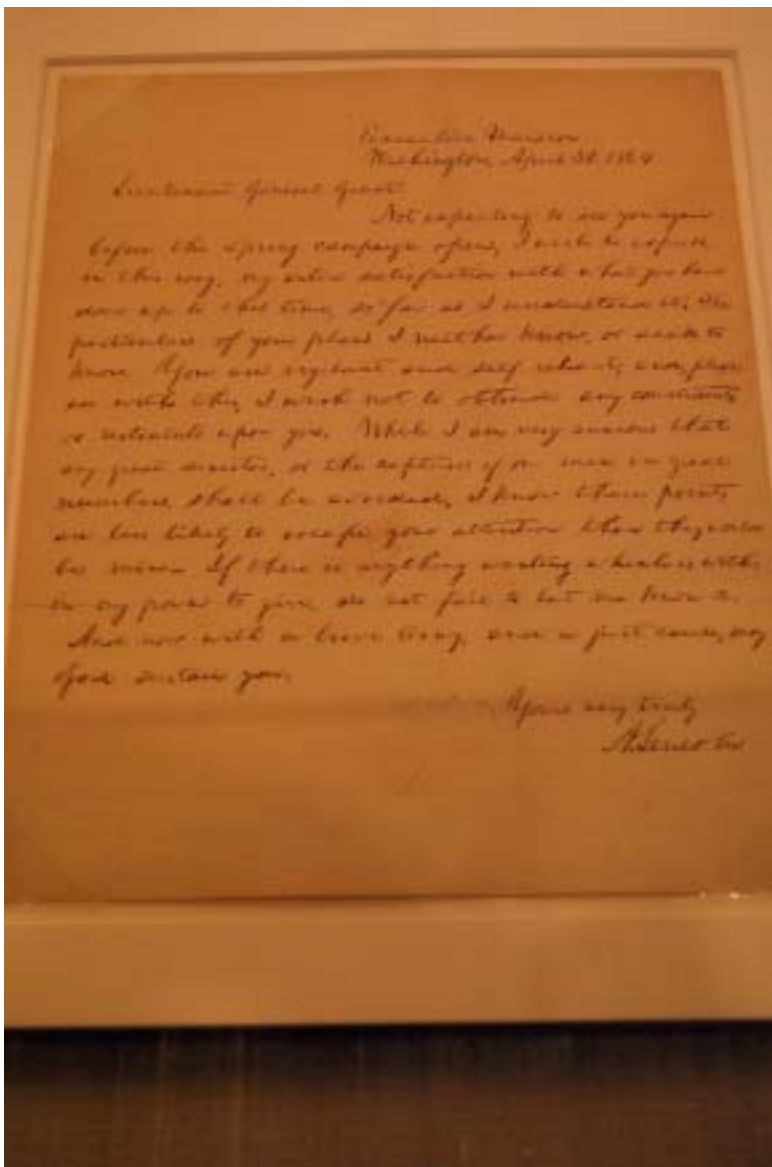 Executive Mansion
Washington, April 30, 1864
Lieutenant General Grant.
Not expecting to see you again
before the Spring campaign opens, I wish to express
in this way, my entire satisfaction with what you have
done up to this time, so far as I understand it. The
particulars of your plans I neither know, or seek to
know. You are vigilant and self-reliant; and, pleased
with this, I wish not to obtrude any constraints
or restraints upon you. While I am very anxious that
any great disaster, or the capture of our men in great
numbers, shall be avoided, I know these points
are less likely to escape your attention than they would
be mine. If there is anything wanting which is within
my power to give, do not fail to let me know it.
And now with a brave Army, and a just cause, may
God sustain you.
Yours very truly
A. Lincoln